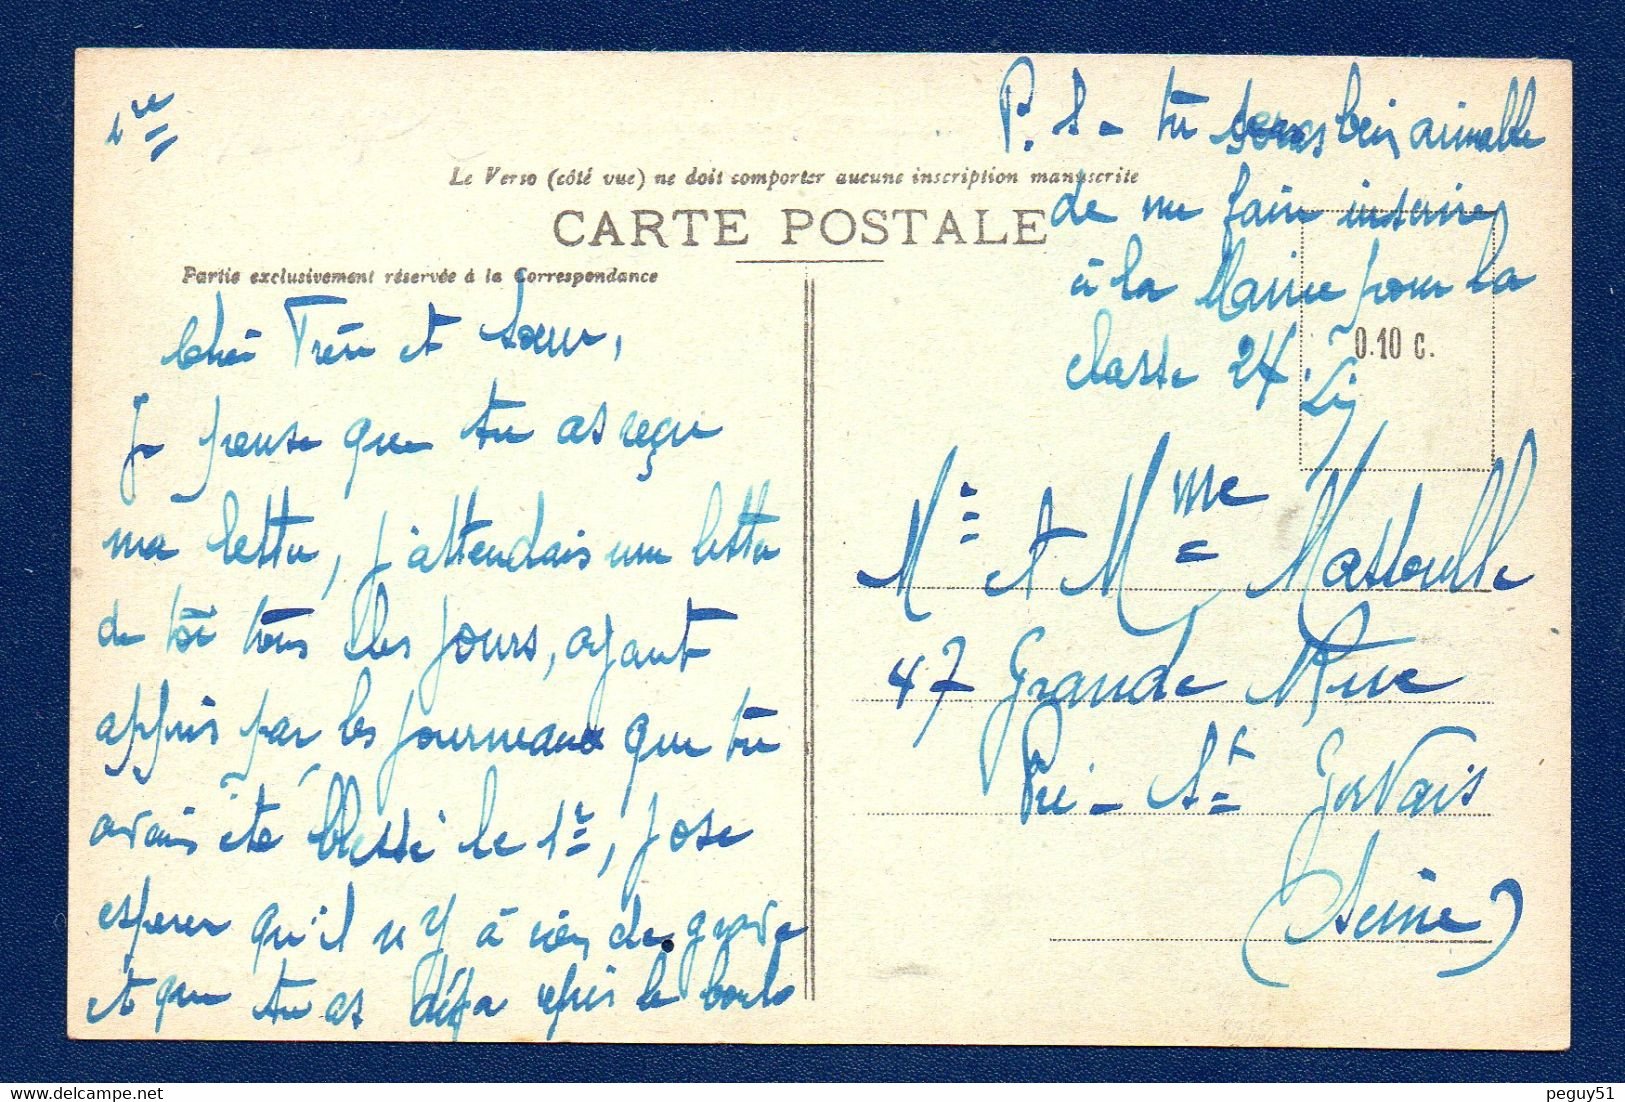 1re
P.S - tu seras bien aimable
de me faire inscrire
à la Mairie pour la
classe 24.
Le Verso (côté vue) ne doit comporter aucune inscription manuscrite
CARTE POSTALE
Partie exclusivement réservée à la Correspondance
0.10 c.
Cher Frère et Sœur,
Je pense que tu as reçu
ma lettre, j'attendais une lettre
de toi tous les jours, ayant
appris par les journeaux que tu
avais été blessé le 1er, j'ose
esperer qu'il n'y a rien de grave
et que tu as déjà repris le boulo
Mr et Mme Massoulle
47 Grande Rue
Pré-St Gervais
(Seine)
peguy51